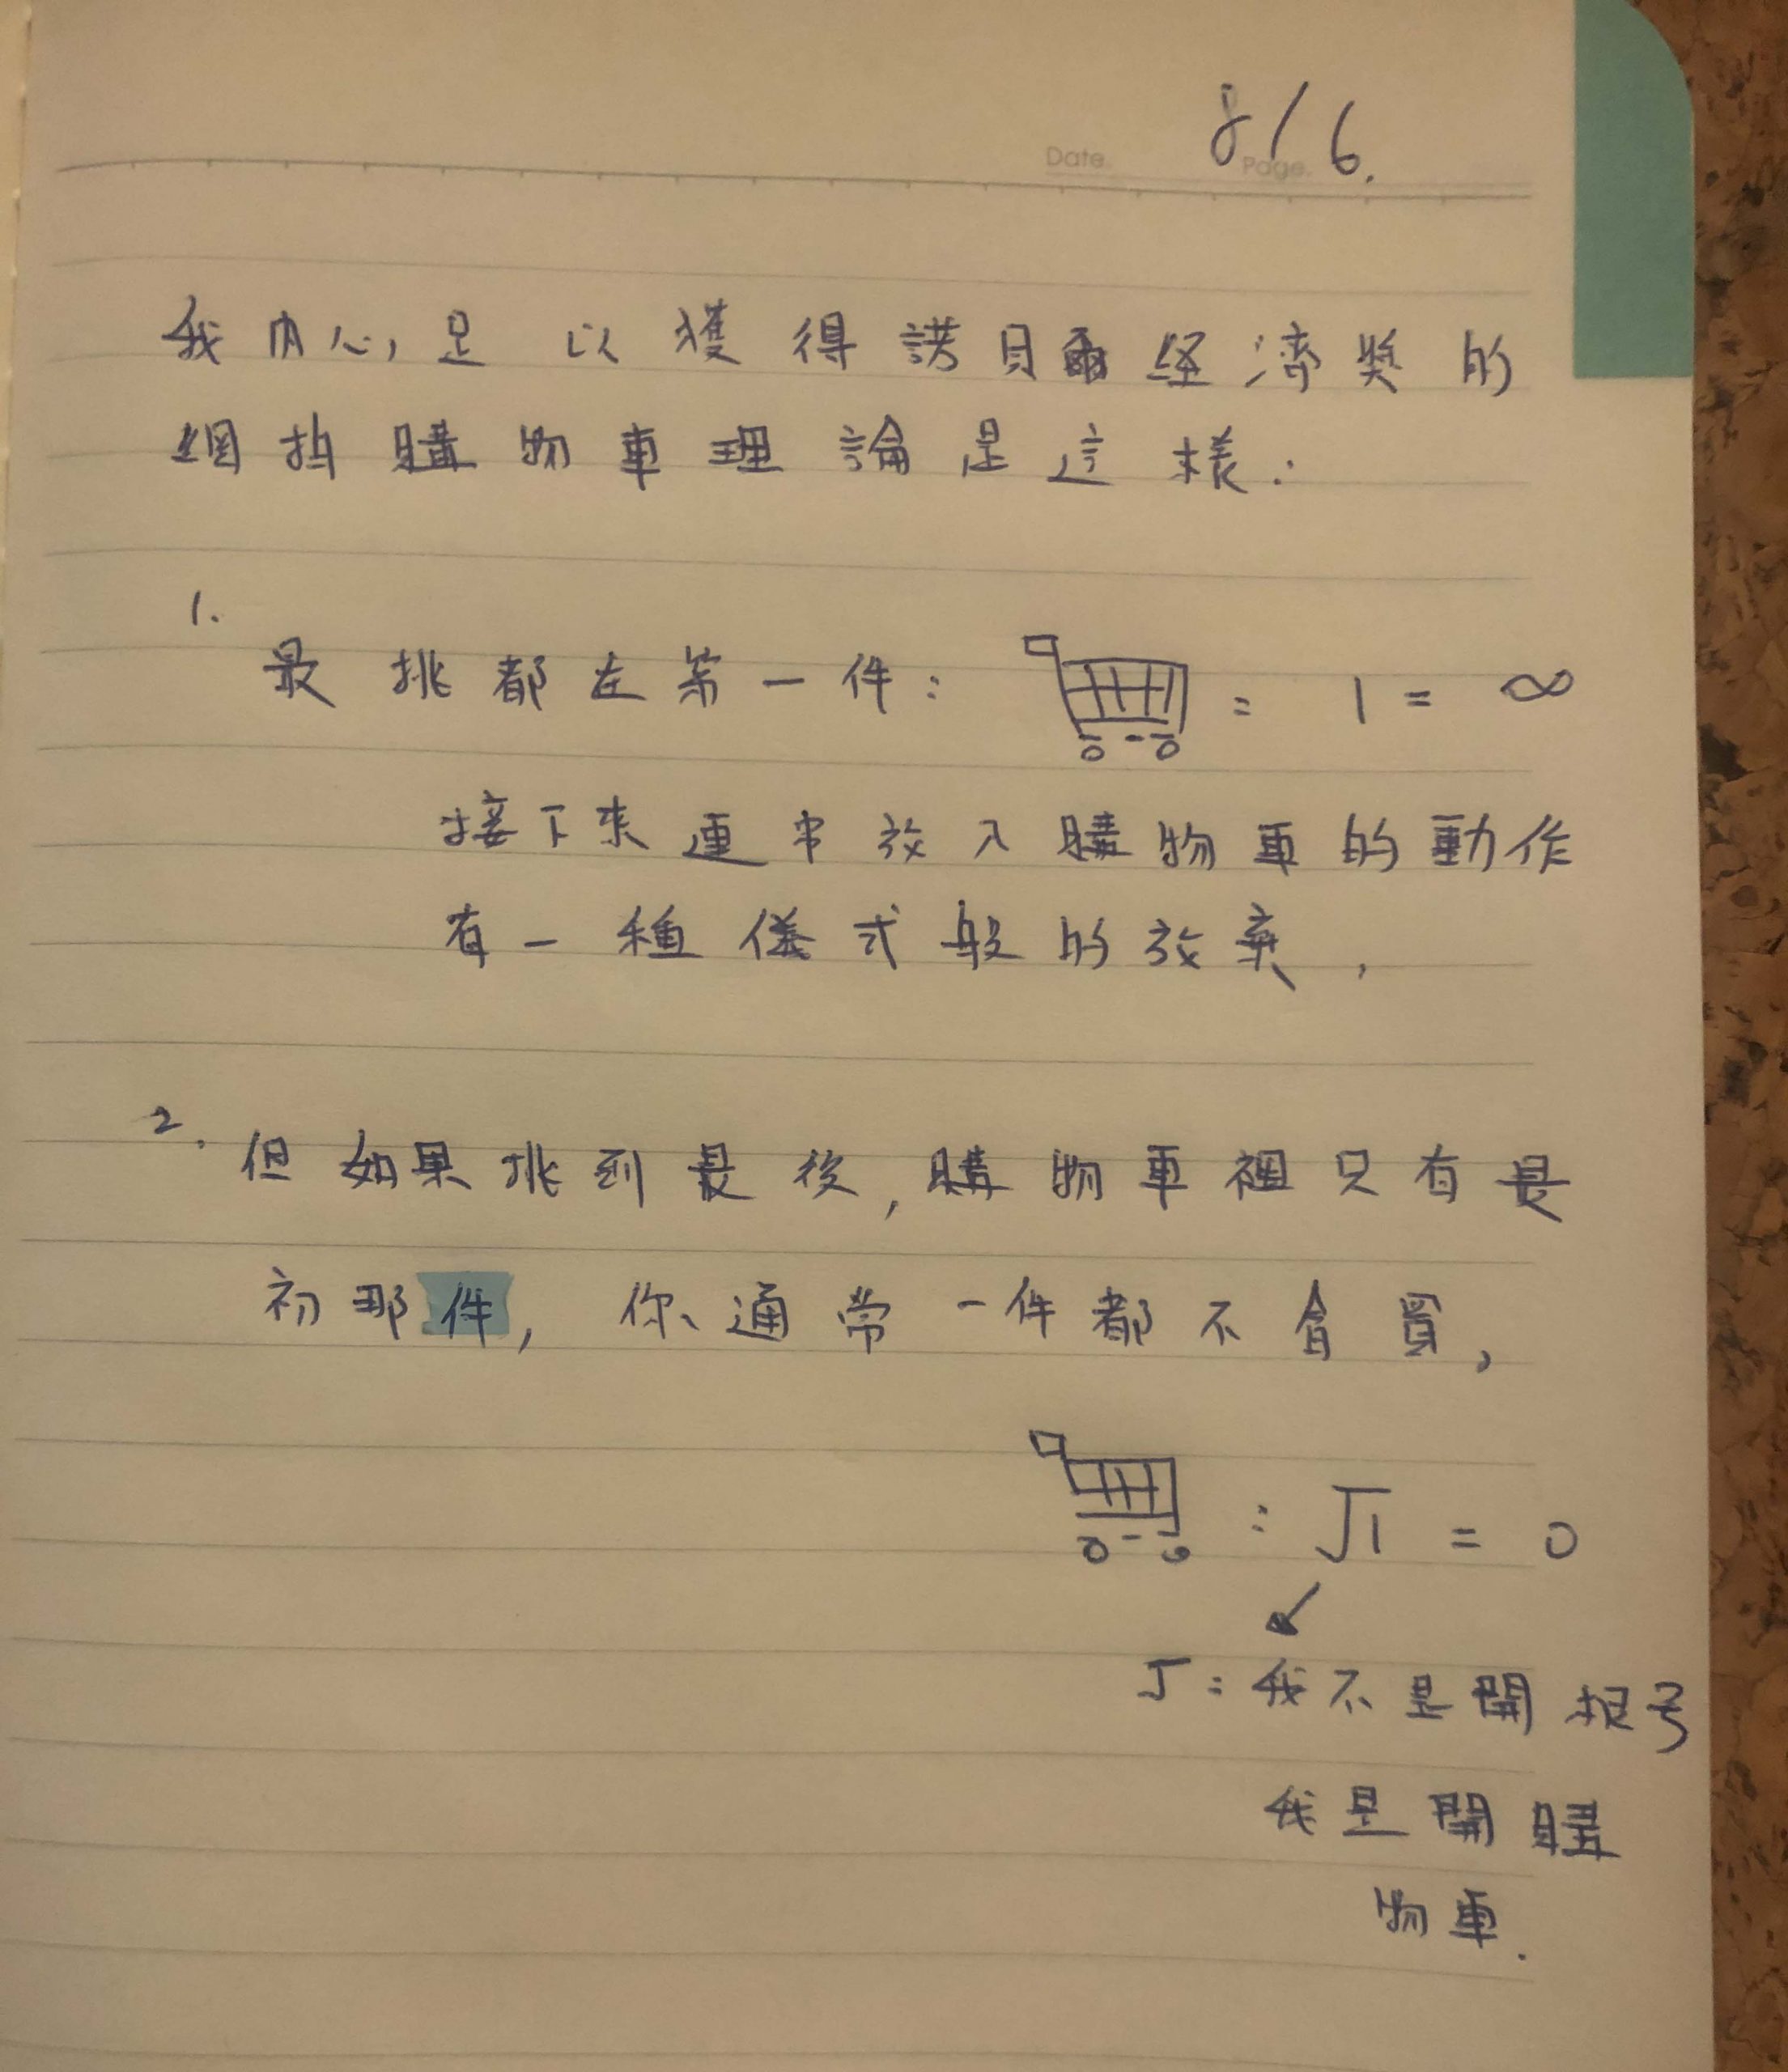 8/6.
Date.
Page.
我內心足以獲得諾貝爾経濟獎的
網拍購物車理論是這樣:
1.
最挑都在第一件: = 1 = ∞
接下來連串放入購物車的動作
有一種儀式般的放棄,
2. 但如果挑到最後,購物車裡只有最
初那件,你通常一件都不會買,
: √1 = 0
√:我不是開根号
我是開購
物車.